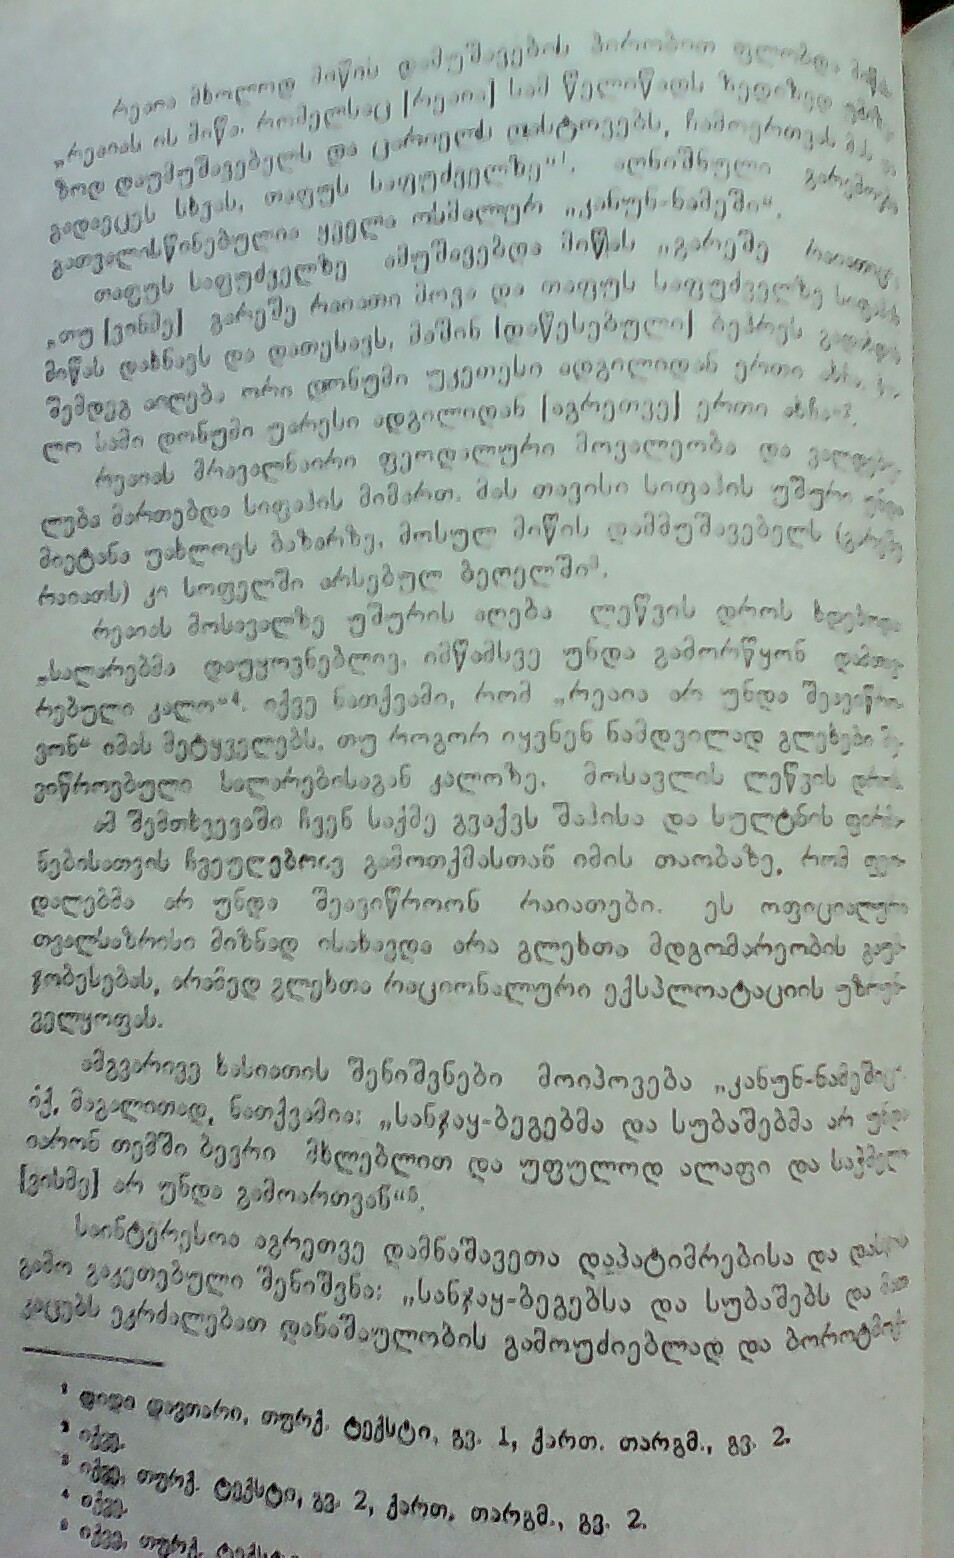 რეაია მხოლოდ მიწის დამუშავების პირობით ფლობდა მიწას.
„რეაიას ის მიწა, რომელსაც [რეაია] სამ წელიწადს ზედიზედ
ზოდ დაუმუშავებელს და ცარიელს დასტოვებს, ჩამოერთვას მას და
გადაეცეს სხვას, თაფუს საფუძველზე“¹. აღნიშნული გარემოება
გათვალისწინებულია ყველა ოსმალურ „კანუნ-ნამეში“.
თაფუს საფუძველზე ამუშავებდა მიწას „გარეშე
„თუ [ვინმე] გარეშე რაიათი მოვა და თაფუს საფუძველზე
მიწას დახნავს და დათესავს, მაშინ [დაწესებული] ბეჰრეს
შემდეგ აიღება ორი დონუმი უკეთესი ადგილიდან ერთი ახჩა,
ლო სამი დონუმი უარესი ადგილიდან [აგრეთვე] ერთი ახჩა“².
რეაიას მრავალნაირი ფეოდალური მოვალეობა და
ლება მართებდა სიფაჰის მიმართ. მას თავისი სიფაჰის უშური უნდა
მიეტანა უახლოეს ბაზარზე, მოსულ მიწის დამმუშავებელს (გარეშე
რაიათს) კი სოფელში არსებულ ბეღელში³.
რეაიას მოსავალზე უშურის აღება ლეწვის დროს ხდებოდა
„სალარებმა დაუყოვნებლივ, იმწამსვე უნდა გამორწყონ
რებული კალო“⁴. იქვე ნათქვამი, რომ „რეაია არ უნდა შეავიწრო-
ვონ“ იმას მეტყველებს, თუ როგორ იყვნენ ნამდვილად გლეხები შე-
ვიწროებული სალარებისაგან კალოზე, მოსავლის ლეწვის დროს.
ამ შემთხვევაში ჩვენ საქმე გვაქვს შაჰისა და სულტნის ფირმა-
ნებისათვის ჩვეულებრივ გამოთქმასთან იმის თაობაზე, რომ ფეო-
დალებმა არ უნდა შეავიწროონ რაიათები. ეს ოფიციალური
თვალსაზრისი მიზნად ისახავდა არა გლეხთა მდგომარეობის გაუმ-
ჯობესებას, არამედ გლეხთა რაციონალური ექსპლოატაციის უზრუნ-
ველყოფას.
ამგვარივე ხასიათის შენიშვნები მოიპოვება „კანუნ-ნამეშიც“.
იქ, მაგალითად, ნათქვამია: „სანჯაყ-ბეგებმა და სუბაშებმა არ უნდა
იარონ თემში ბევრი მხლებლით და უფულოდ ალაფი და საჭმელი
[ვისმე] არ უნდა გამოართვან“⁵.
საინტერესოა აგრეთვე დამნაშავეთა დაპატიმრებისა და დასჯის
გამო გაკეთებული შენიშვნა: „სანჯაყ-ბეგებსა და სუბაშებს და მათ
კაცებს ეკრძალებათ დანაშაულობის გამოუძიებლად და ბოროტმოქ-
¹ დიდი დავთარი, თურქ. ტექსტი, გვ. 1, ქართ. თარგმ., გვ. 2.
² იქვე.
³ იქვე, თურქ. ტექსტი, გვ. 2, ქართ. თარგმ., გვ. 2.
⁴ იქვე.
⁵ იქვე, თურქ. ტექსტი